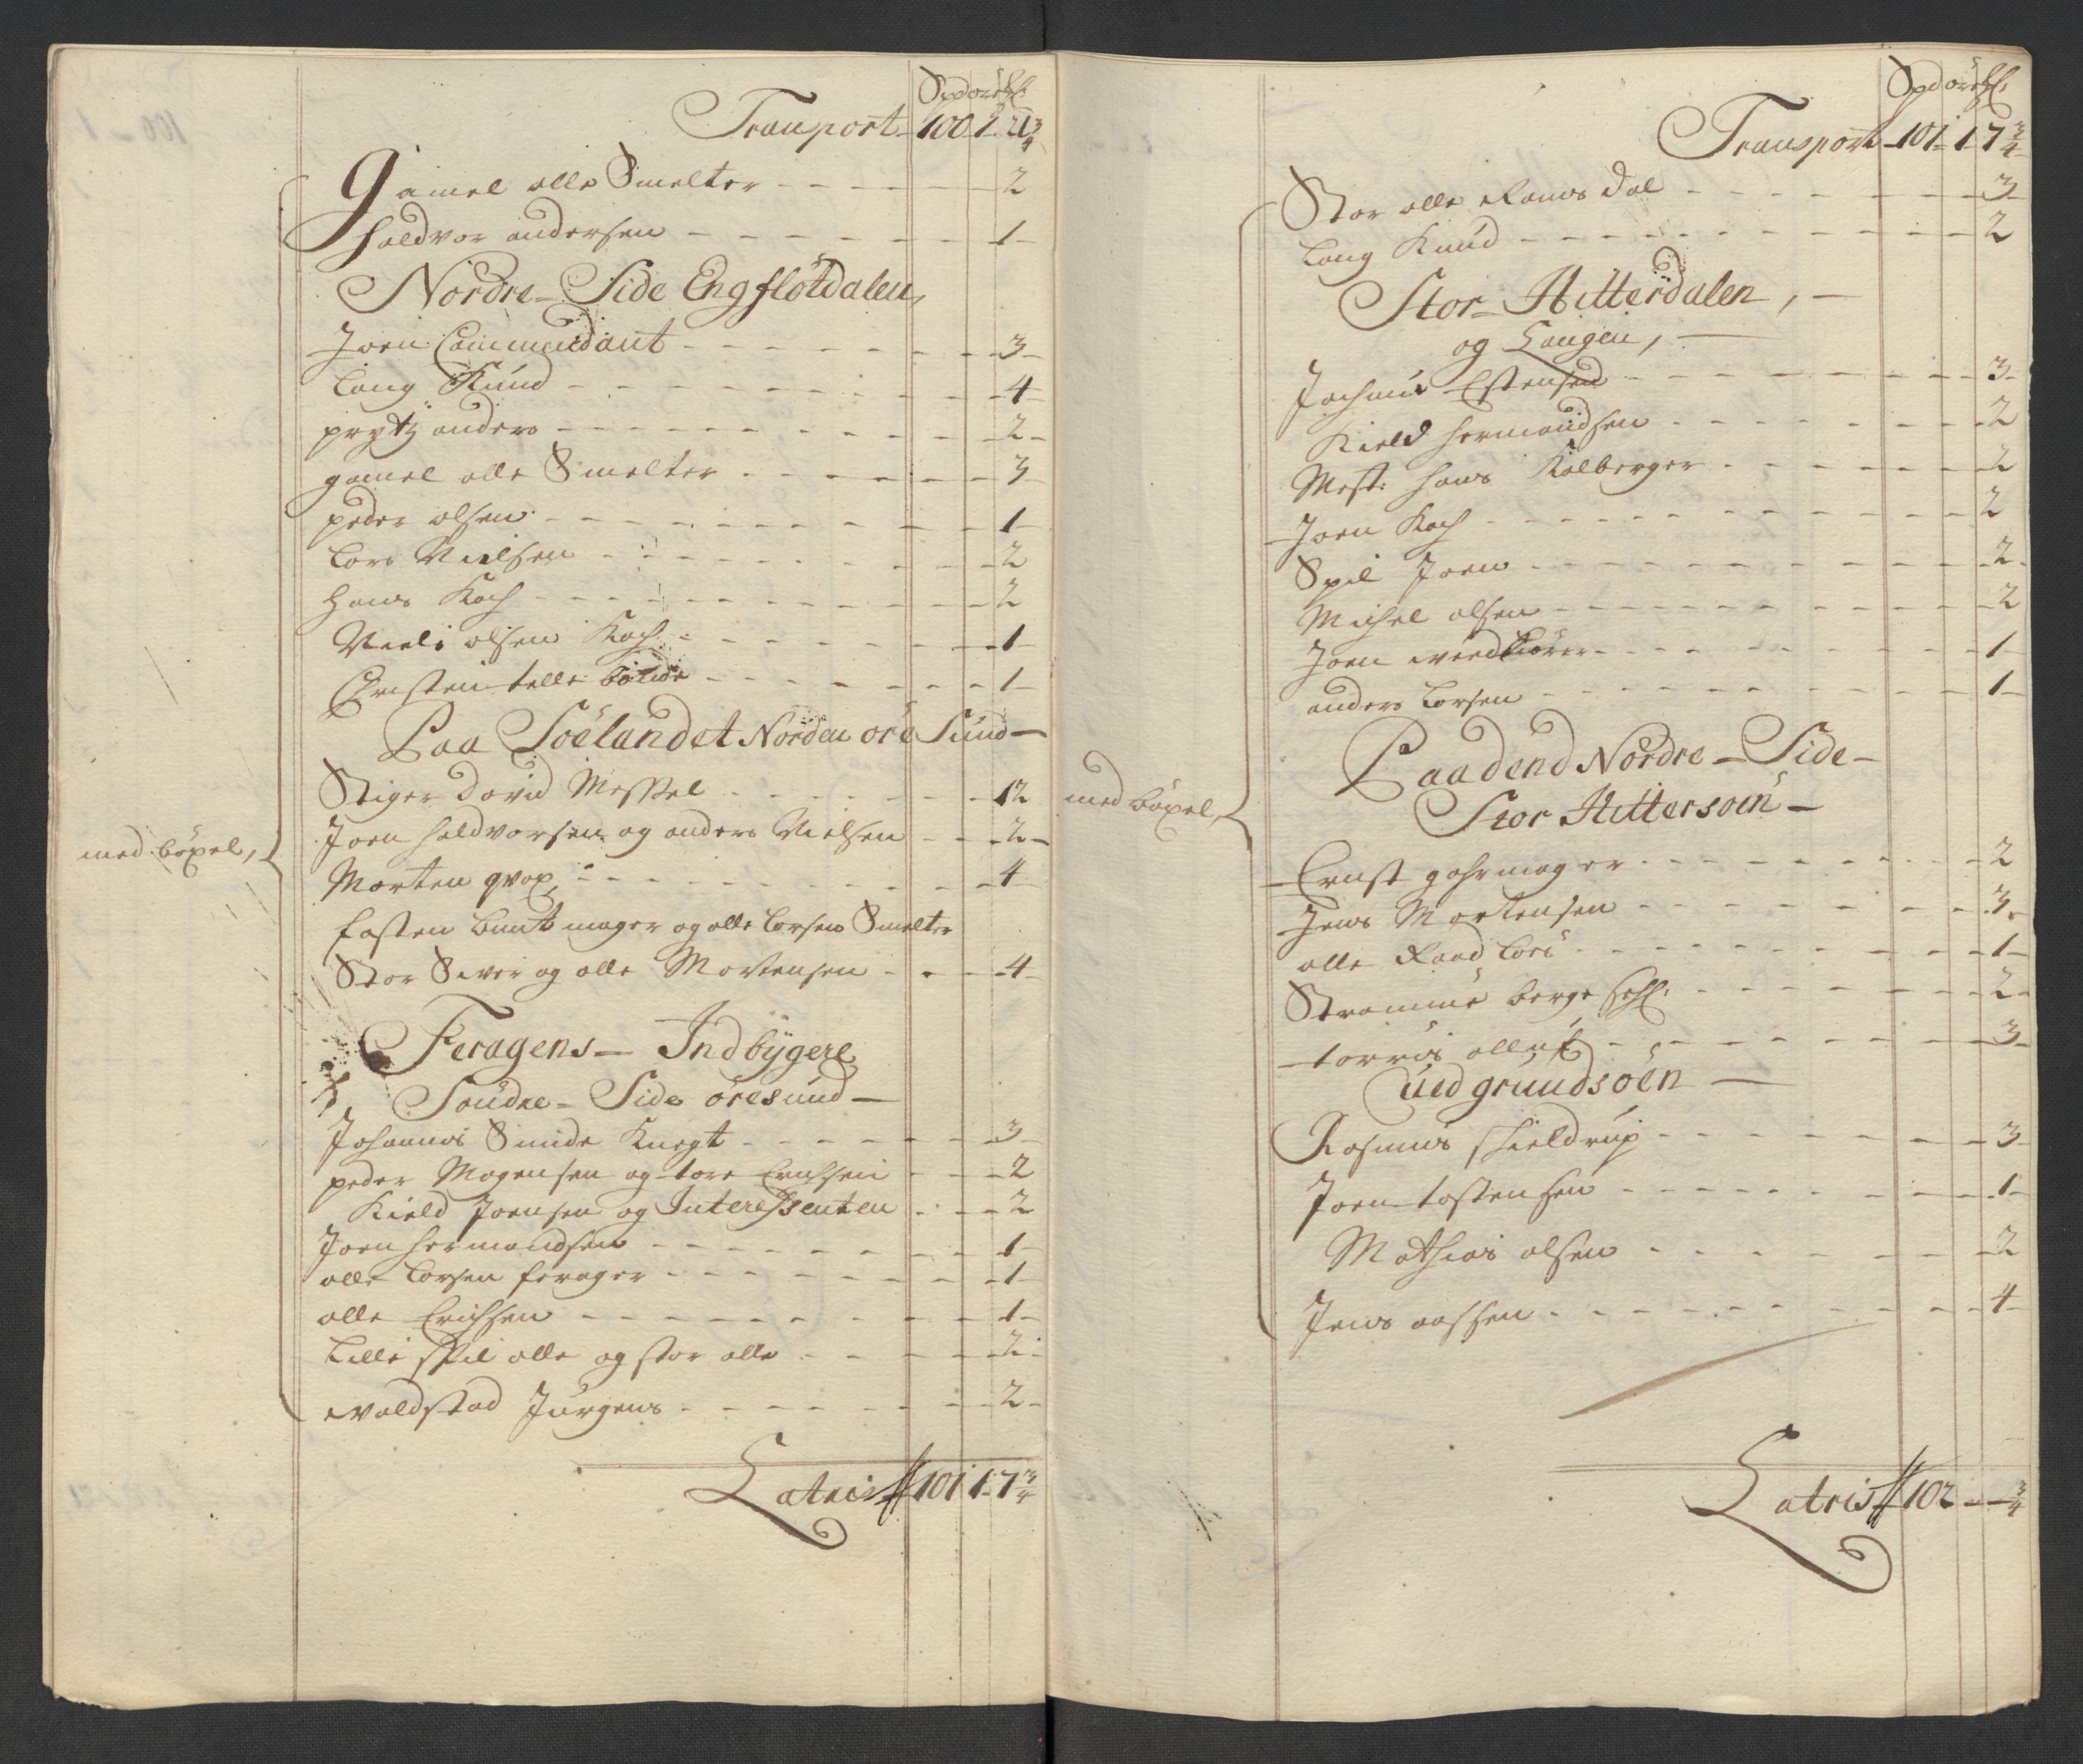 Spd ort ſl:
Transport 100 1 21 3/4
Gamel olle Smelter - - - 2
Haldvor andersen - - - 1
Nordre Side Engfløtdalen,
Joen Commendant - - - 3
Lang Knud - - - 4
prytz anders - - - 2
gamel olle Smelter - - - 3
peder olsen - - - 1
Lars Nielsen - - - 2
Hans Koch - - - 2
Niels olsen Koch - - - 1
Christen telle bonde - - - 1
Paa Söelandet Norden öre Sund
Stiger David Meffel - - - 12
Joen haldvorsen og anders Nielsen - - - 2
med böxel,
Morten qvax - - - 4
fasten buntmager og olle Larsen Smelter
Stor Siver og olle Mortensen - - - 4
Feragens Indbÿgere
Söndre Side öresund
Johannes Smide Knegt - - - 3
peder Mogensen og tore Erichsen - - - 2
Kield Joensen og Interessenten - - - 2
Joen hermandsen - - - 1
olle Larsen ferager - - - 1
olle Erichsen - - - 1
Lille Spil olle og stor olle - - - 2
Waldstad Jürgens - - - 2
Lateris 101 1 7 3/4
Spd ort ſl:
Transport 101 1 7 3/4
Stor olle Ramsdal - - - 3
Lang Knud - - - 2
Stor Hitterdalen,
og Langen,
Jochum Estensen - - - 3
Kield hermandsen - - - 2
Mest: Hans Kolberger - - - 2
Joen Koch - - - 2
Spil Joen - - - 2
Michel olsen - - - 2
Joen wedkiörer - - - 1
anders Larsen - - - 1
Paa dend Nordre Side
med böxel,
Stor Hittersöen
Ernst gahrmager - - - 2
Jens Mortensen - - - 3
olle Raad Lars - - - 1
Stramme berge - - - 2
torris olle - - - 3
ved grundsöen
Rasmus Skieldrup - - - 3
Joen tostensen - - - 1
Mathias olsen - - - 2
Jens aassen - - - 4
Lateris 102 - - 3/4